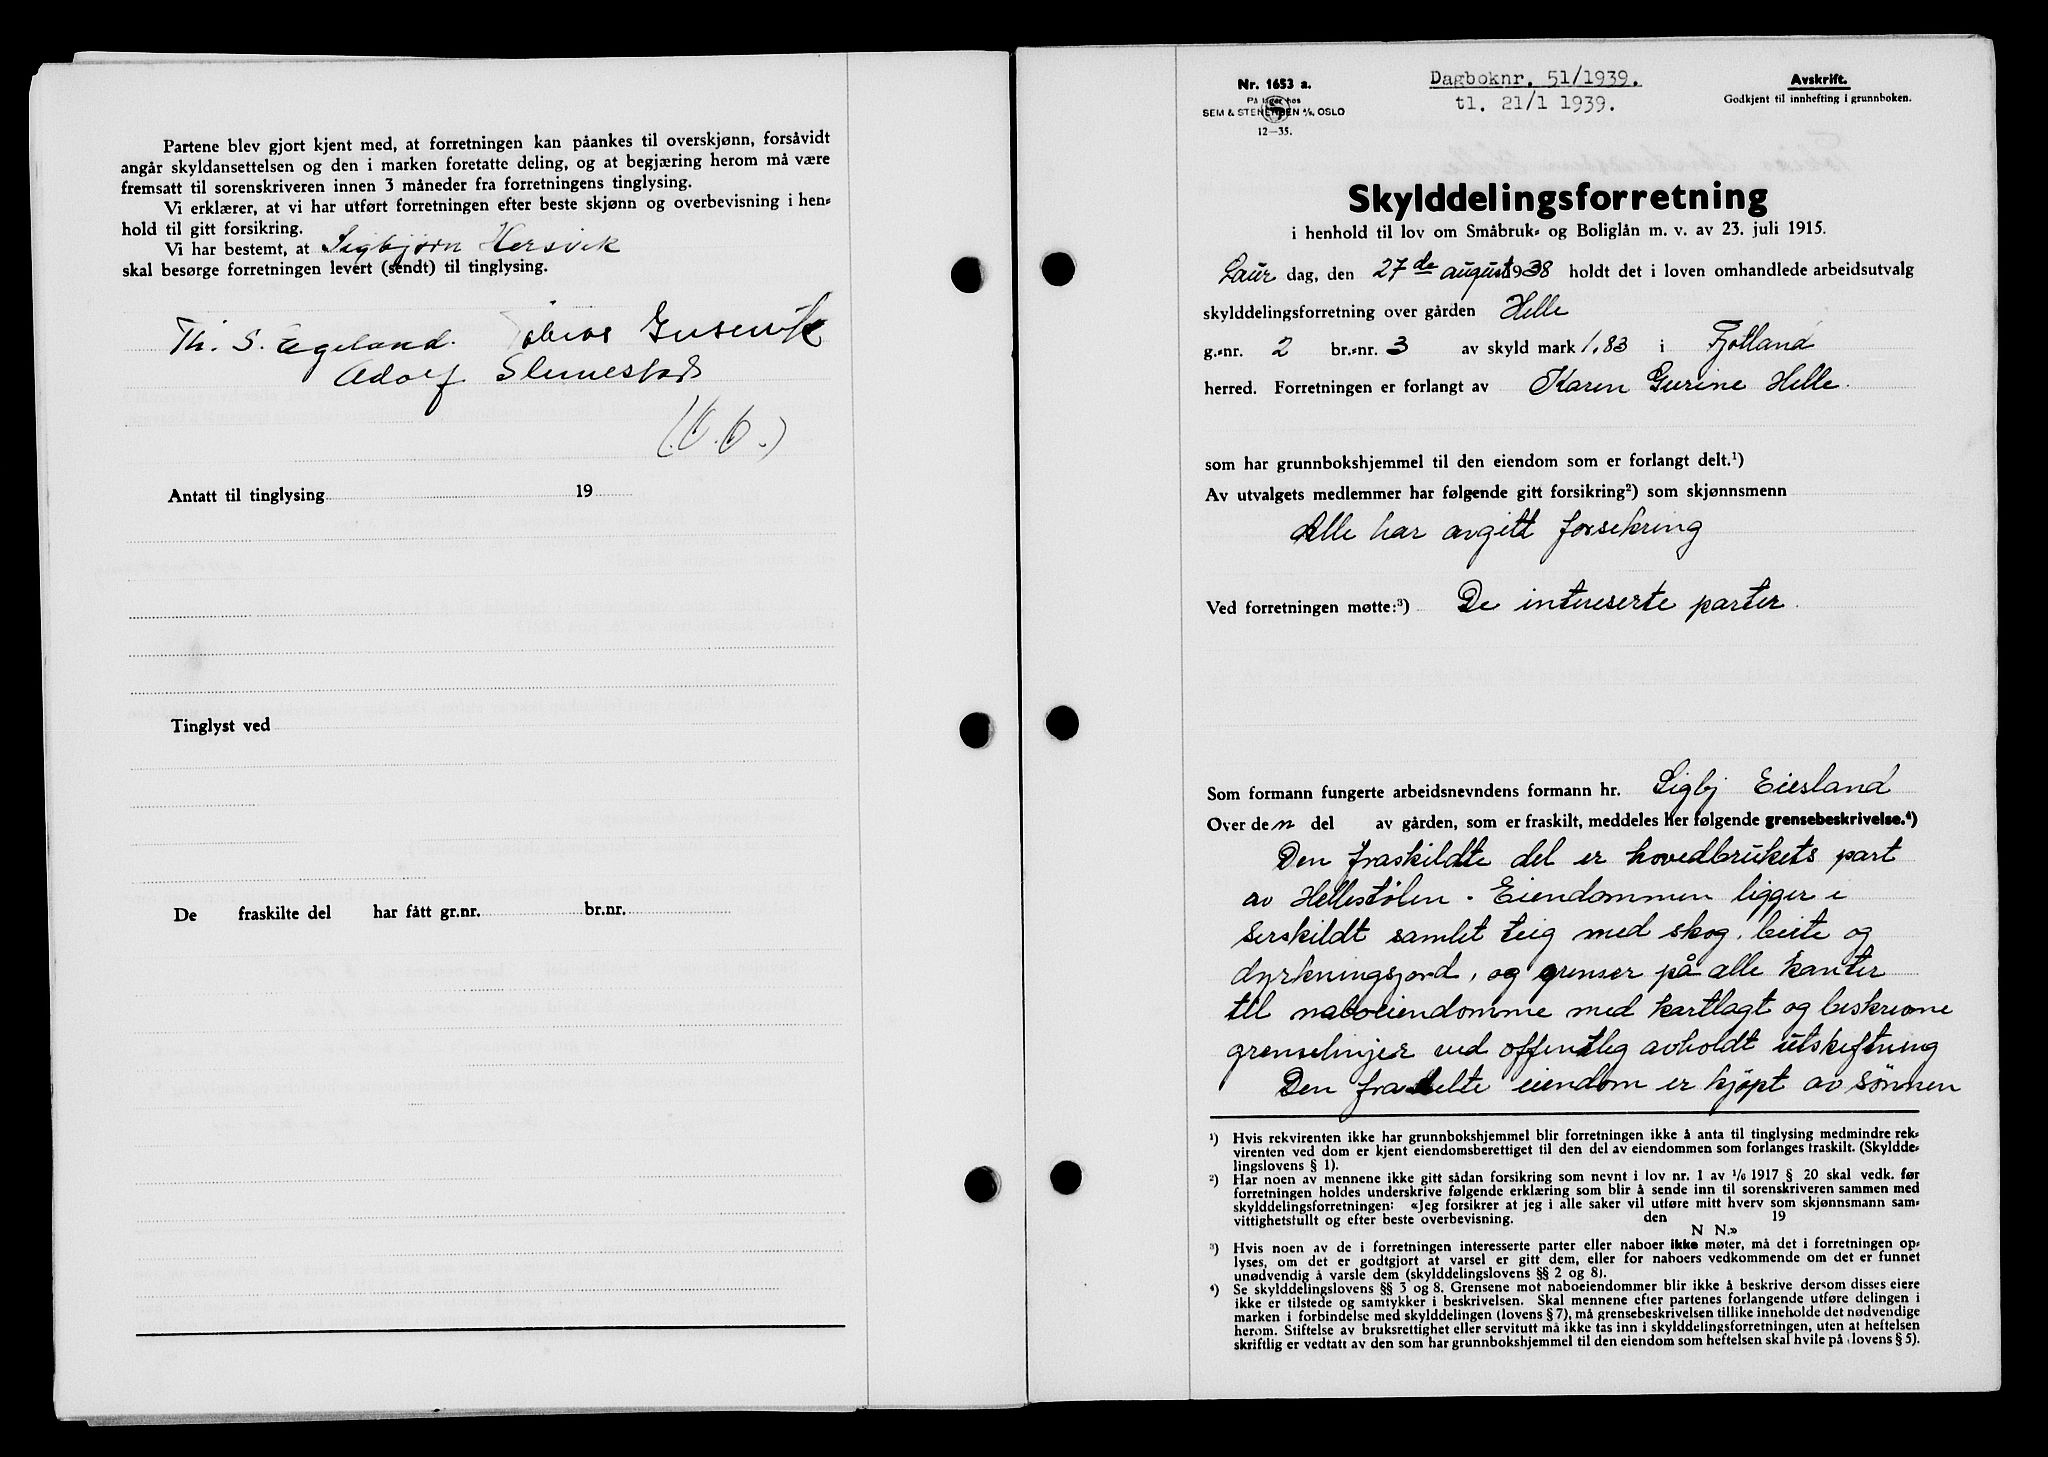 Partene blev gjort kjent med, at forretningen kan påankes til overskjønn, forsåvidt
angår skyldansettelsen og den i marken foretatte deling, og at begjæring herom må være
fremsatt til sorenskriveren innen 3 måneder fra forretningens tinglysing.
Vi erklærer, at vi har utført forretningen efter beste skjønn og overbevisning i hen-
hold til gitt forsikring.
Vi har bestemt, at Sigbjørn Hersvik
skal besørge forretningen levert (sendt) til tinglysing.
Th. S. Egeland. Tobias
Adolf
Antatt til tinglysing 19
Tinglyst ved
De fraskilte del har fått gr.nr. br.nr.
Nr. 1653 a.
På lager hos
SEM & STENERSEN A/S, OSLO
12-35.
Dagboknr. 51/1939.
tl. 21/1 1939.
Avskrift.
Godkjent til innhefting i grunnboken.
Skylddelingsforretning
i henhold til lov om Småbruk- og Boliglån m. v. av 23. juli 1915.
Laur dag, den 27de august 1938 holdt det i loven omhandlede arbeidsutvalg
skylddelingsforretning over gården Helle
g.-nr. 2 br.-nr. 3 av skyld mark 1,83 i Fjotland
herred. Forretningen er forlangt av Karen Gurine Helle.
som har grunnbokshjemmel til den eiendom som er forlangt delt.¹)
Av utvalgets medlemmer har følgende gitt forsikring²) som skjønnsmenn
Alle har avgitt forsikring
Ved forretningen møtte:³) De intereserte parter.
Som formann fungerte arbeidsnevndens formann hr. Sigbj Eiesland
Over den del av gården, som er fraskilt, meddeles her følgende grensebeskrivelse.⁴)
Den fraskildte del er hovedbrukets part
av Hellestølen. Eiendommen ligger i
serskildt samlet teig med skog, beite og
dyrkningsjord, og grenser på alle kanter
til naboeiendomme med kartlagt og beskrevne
grenselinjer ved offentlig avholdt utskiftning
Den fraskelte eiendom er kjøpt av sønnen
¹) Hvis rekvirenten ikke har grunnbokshjemmel blir forretningen ikke å anta til tinglysing medmindre rek-
virenten ved dom er kjent eiendomsberettiget til den del av eiendommen som forlanges fraskilt. (Skyldde-
lingslovens § 1).
²) Har noen av mennene ikke gitt sådan forsikring som nevnt i lov nr. 1 av 1/6 1917 § 20 skal vedk. før
forretningen holdes underskrive følgende erklæring som blir å sende inn til sorenskriveren sammen med
skylddelingsforretningen: «Jeg forsikrer at jeg i alle saker vil utføre mitt hverv som skjønnsmann sam-
vittighetsfullt og efter beste overbevisning. den 19
N N.»
³) Hvis noen av de i forretningen interesserte parter eller naboer ikke møter, må det i forretningen op-
lyses, om det er godtgjort at varsel er gitt dem, eller for naboers vedkommende om det er funnet
unødvendig å varsle dem (skylddelingslovens §§ 2 og 8).
⁴) Se skylddelingslovens §§ 3 og 8. Grensene mot naboeiendommer blir ikke å beskrive dersom disses eiere
ikke er tilstede og samtykker i beskrivelsen. Skal mennene efter partenes forlangende utføre delingen i
marken i forbindelse med skylddelingen (lovens § 7), må grensebeskrivelsen tillike inneholde det nødvendige
herom. Stiftelse av bruksrettighet eller servitutt må ikke tas inn i skylddelingsforretningen, uten at heftelsen
skriftlig er vedtatt av den som har grunnbokshjemmel til den eiendom som heftelsen skal hvile på (lovens § 5).